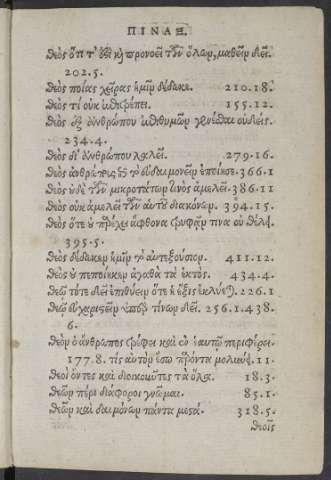 ΠΙΝΑΞ.
θεὸς ὅτι τ' ἐστὶ καὶ προνοεῖ τῶν ὅλων, μαθεῖν δεῖ.
202.5.
θεὸς ποίας χεῖρας ἡμῖν δέδωκε. 210.18.
θεὸς τί οὐκ ἐπιτρέπει. 155.12.
θεὸς ἐξ ἀνθρώπου ἐπιθυμῶν γενέσθαι οὐδείς.
234.4.
θεὸς δι' ἀνθρώπου λαλεῖ. 279.16.
θεὸς ἀνθρώπους ἐπὶ τὸ εὐδαιμονεῖν ἐποίησε. 366.1
θεὸς οὐδὲ τῶν μικροτάτων τινὸς ἀμελεῖ. 386.11
θεὸς οὐκ ἀμελεῖ τῶν αὐτοῦ διακόνων. 394.15.
θεὸς ὅτε οὐ παρέχει ἄφθονα τροφὴν τινα οὐ θέλει.
395.5.
θεὸς δέδωκεν ἡμῖν τὸ αὐτεξούσιον. 411.12.
θεὸς οὐ πεποίηκεν ἀγαθὰ τὰ ἐκτός. 434.4.
θεῷ τότε δεῖ ἐπιθύειν ὅτε ἡ ἕξις ἐκλύεται. 226.1
θεῷ εὐχαριστεῖν ὑπὲρ τίνων δεῖ. 256.1.438.
6.
θεὸν ὁ ἄνθρωπος τρέφει καὶ ἐν ἑαυτῷ περιφέρει.
177.8. τίς αὐτὸν ἔσω παρόντα μολύνει. 11.
θεοὶ ὄντες καὶ διοικοῦντες τὰ ὅλα. 18.3.
θεῶν πέρι διάφοροι γνῶμαι. 85.1.
θεῶν καὶ δαιμόνων πάντα μεστά. 318.5.
θεοῖς